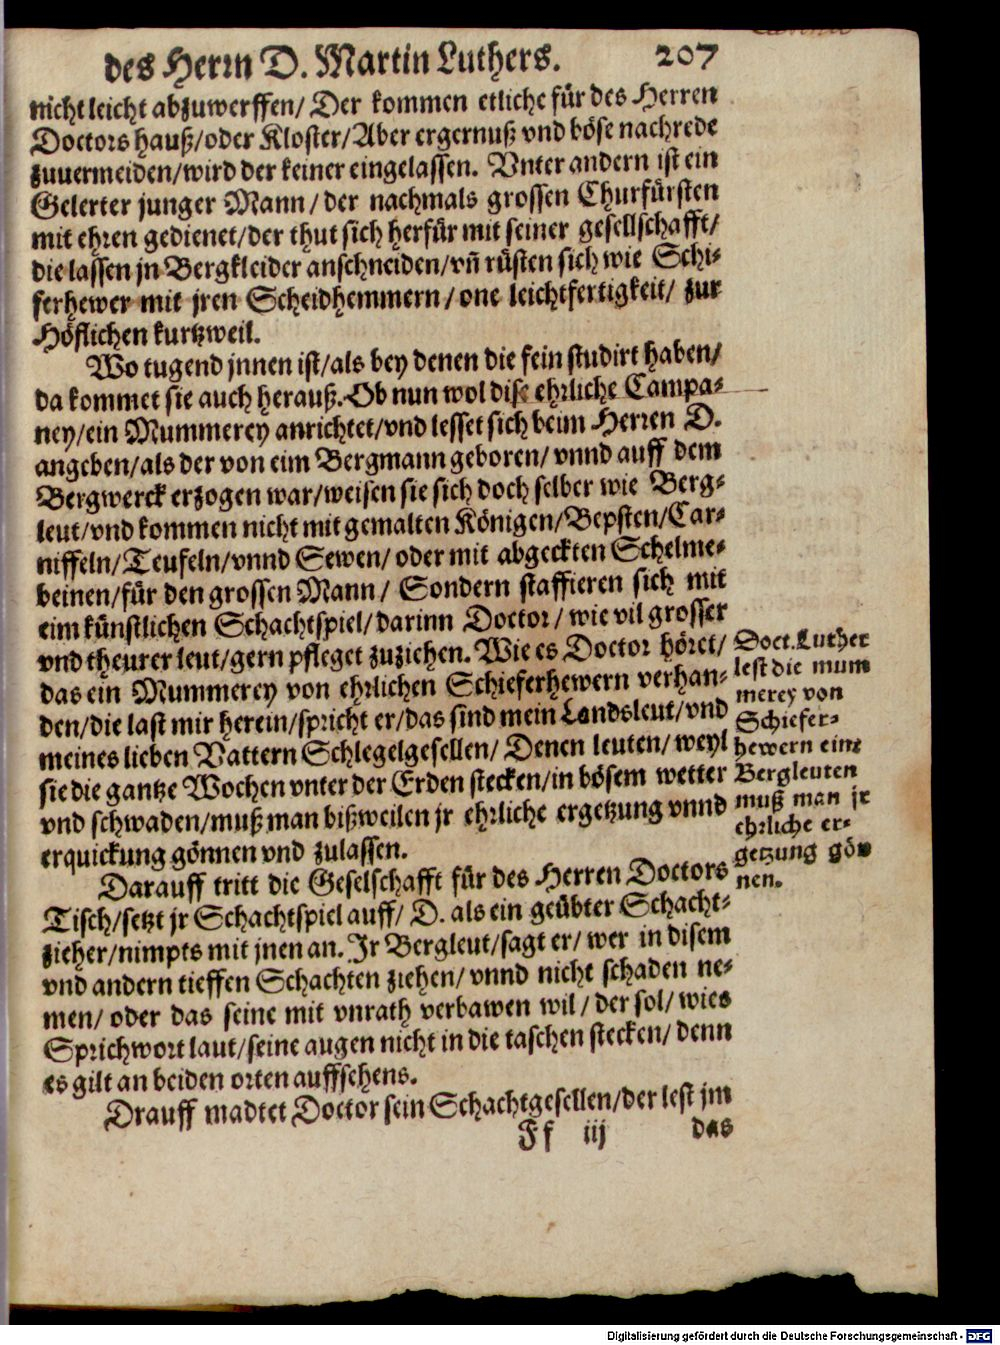 des Herrn D. Martin Luthers. 207
nicht leicht abzuwerffen/ Der kommen etliche für des Herren
Doctors hauß/oder Kloster/Aber ergernuß vnd böse nachrede
zuuermeiden/wird der keiner eingelassen. Vnter andern ist ein
Gelerter junger Mann/der nachmals grossen Churfürsten
mit ehren gedienet/der thut sich herfür mit seiner gesellschafft/
die lassen jn Bergkleider anschneiden/vñ rüsten sich wie Schi-
ferhewer mit jren Scheidhemmern/one leichtfertigkeit/ zur
Höflichen kurtzweil.
Wo tugend jnnen ist/als bey denen die fein studirt haben/
da kommet sie auch herauß. Ob nun wol dise ehrliche Campa-
ney/ein Mummerey anrichtet/vnd lesset sich beim Herren D.
angeben/als der von eim Bergmann geboren/ vnnd auff dem
Bergwerck erzogen war/weisen sie sich doch selber wie Berg-
leut/vnd kommen nicht mit gemalten Königen/Bepsten/Car-
niffeln/Teufeln/vnnd Sewen/ oder mit abgeckten Schelme-
beinen/für den grossen Mann/ Sondern staffieren sich mit
eim künstlichen Schachtspiel/darinn Doctor/ wie vil grosser
vnd theurer leut/gern pfleget zuziehen. Wie es Doctor höret/
das ein Mummerey von ehrlichen Schieferhewern verhan-
den/die last mir herein/spricht er/das sind mein Landsleut/vnd
meines lieben Vattern Schlegelgesellen/ Denen leuten/ weyl
sie die gantze Wochen vnter der Erden stecken/in bösem wetter
vnd schwaden/muß man bißweilen jr ehrliche ergetzung vnnd
erquickung gönnen vnd zulassen.
Doct. Luther
lest die mum
merey von
Schiefer-
hewern ein:
Bergleuten
muß man jr
ehrliche er-
getzung gön
nen.
Darauff tritt die Geselschafft für des Herren Doctors
Tisch/setzt jr Schachtspiel auff/ D. als ein geübter Schacht-
zieher/nimpts mit jnen an. Jr Bergleut/sagt er/ wer in disem
vnd andern tieffen Schachten ziehen/ vnnd nicht schaden ne-
men/ oder das seine mit vnrath verbawen wil/ der sol/ wies
Sprichwort laut/seine augen nicht in die taschen stecken/ denn
es gilt an beiden orten auffsehens.
Drauff madtet Doctor sein Schachtgesellen/der lest jm
Ff iij das
Digitalisierung gefördert durch die Deutsche Forschungsgemeinschaft - DFG